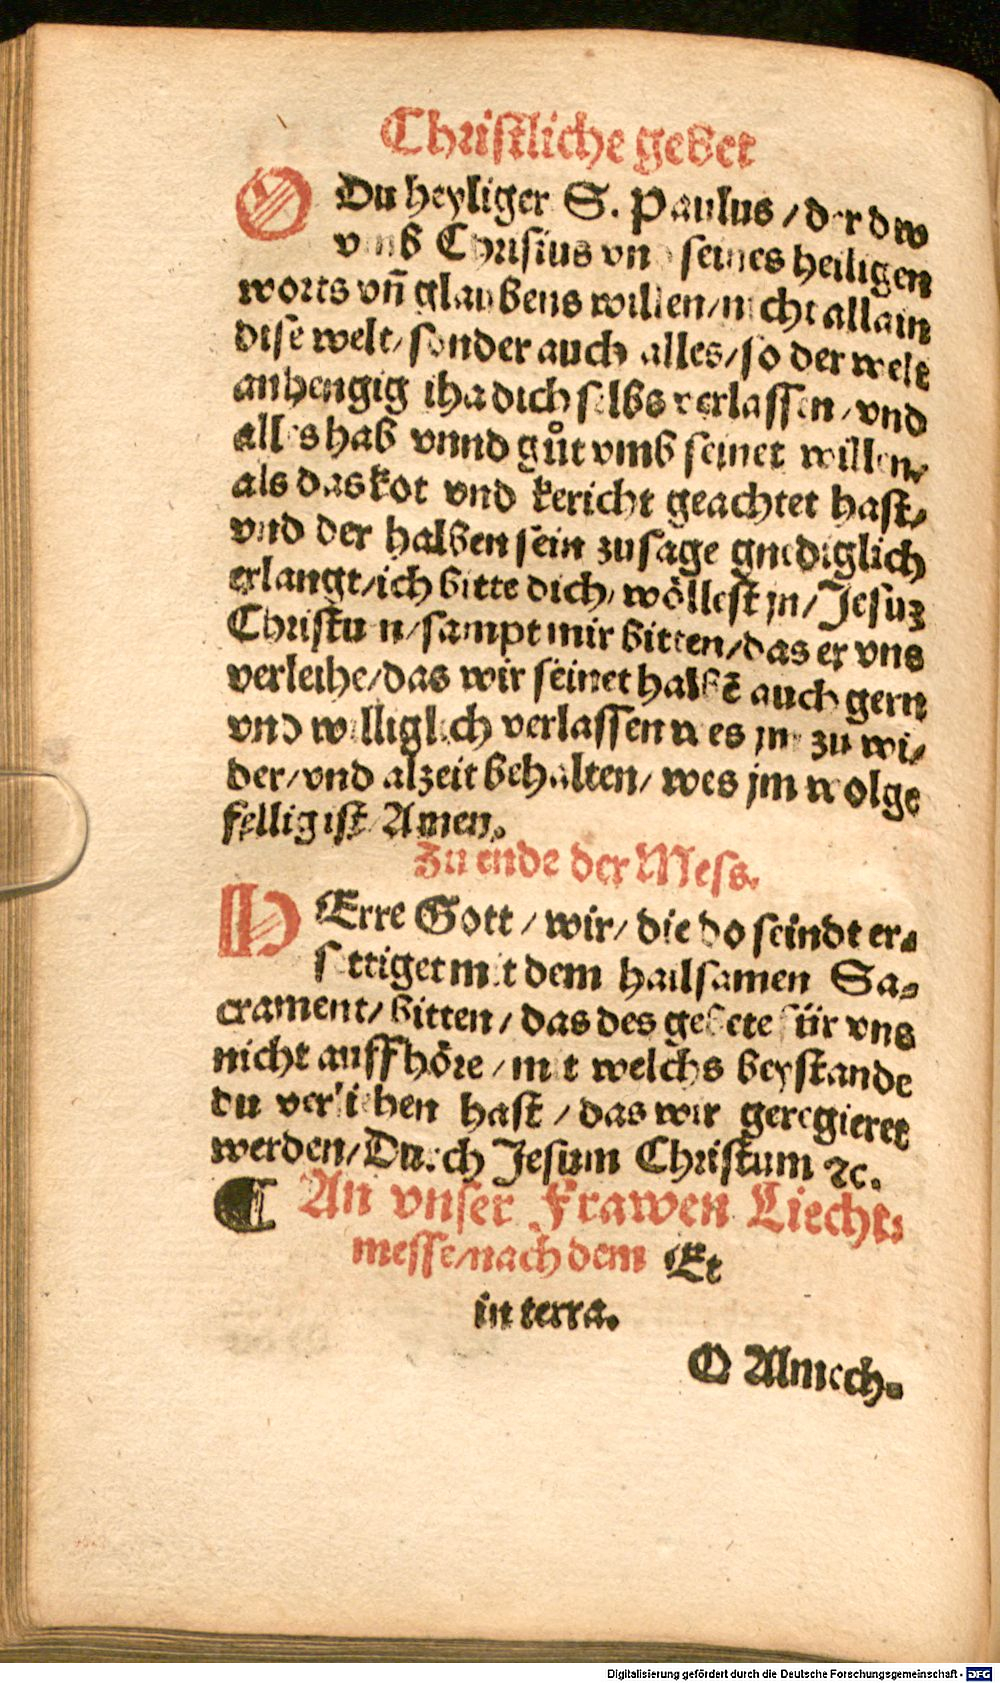 Christliche gebet
O Du heyliger S. Paulus / der dw
vmb Christus vnd seines heiligen
worts vn̄ glaubens willen / nicht allain
dise welt / sonder auch alles / so der welt
anhengig iha dich selbs verlassen / vnd
alles hab vnnd gůt vmb seinet willen /
als das kot vnd kericht geachtet hast /
vnd der halben sein zusage gnediglich
erlangt / ich bitte dich / wöllest jn / Jesuȝ
Christum / sampt mir bitten / das er vns
verleihe / das wir seinet halbē auch gern
vnd williglich verlassen wes jm zu wi /
der / vnd alzeit behalten / wes jm wolge
fellig ist / Amen.
Zu ende der Mess.
HErre Gott / wir / die do seindt er⸗
settiget mit dem hailsamen Sa⸗
crament / bitten / das des gebete für vns
nicht auffhöre / mit welchs beystande
du verliehen hast / das wir geregieret
werden / Durch Jesum Christum ꝛc.
¶ An vnser Frawen Liecht⸗
messe / nach dem Et
in terra.
O Almech⸗
Digitalisierung gefördert durch die Deutsche Forschungsgemeinschaft - DFG